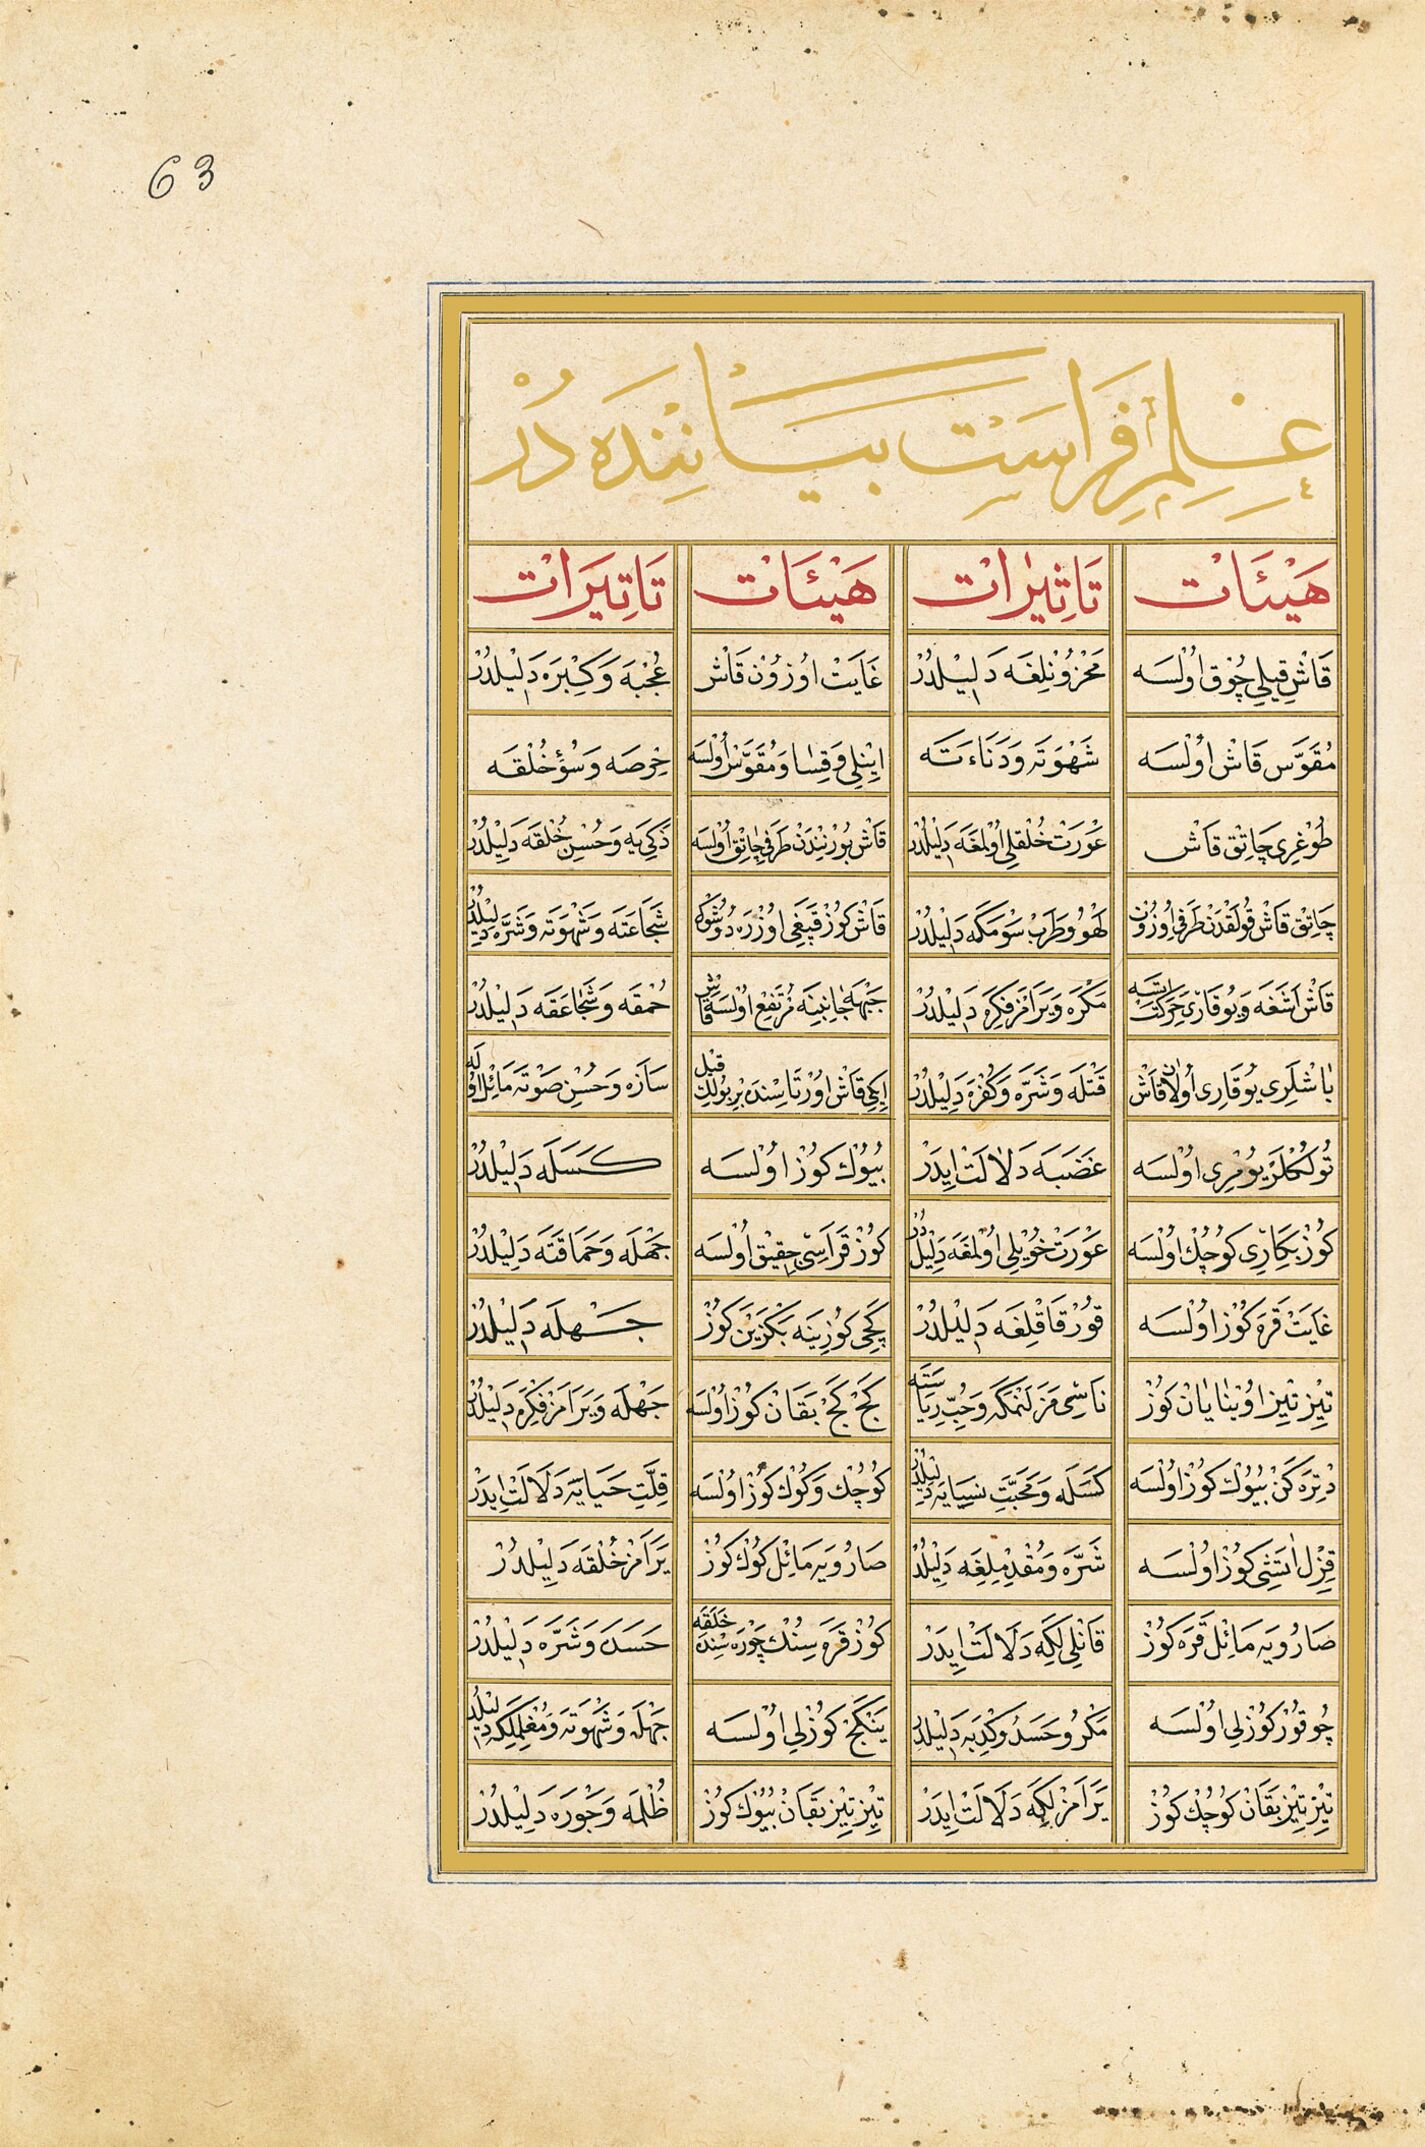 63
عِلْمِ فِرَاسَتِ بَيَانِنْدَه دُرْ
هَيْئَاتْ تَاثِيرَاتْ هَيْئَاتْ تَاتِيَرَاتْ
قَاشْ قِيلِي چُوْقْ اُوْلْسَه مَحْزُونْلِغَه دَلِيْلدُرْ غَايَتْ اُوزُوْنْ قَاشْ عُجْبَه وَكِبْرَه دَلِيلدُرْ
مُقَوَّسْ قَاشْ اُولْسَه شَهْوَتَه وَدَنَاءَتَه اِينْلِي وَقِسَا وَمُقَوَّسْ اُولْسَه حِرِصَه وَسُؤِخُلْقَه
طُوغْرِي چَاتِقْ قَاشْ عَوْرَتْ خُلْقلِي اُولْمَغَه دَلِيْلدُرْ قَاشْ بُوْرْنِنْدَنْ طَرَفِي چَاتِقْ اُولْسَه ذَكِيَيَه وَحُسْنِ خُلْقَه دَلِيلدُرْ
چَاتِقْ قَاشْ قُولَقْدَنْ طَرَفِي اُوزُونْ لَهْوُ وطَرَبْ سَوْمَكَه دَلِيْلدُرْ قَاشْ كُوزْ قَپَغِي اُوزْرَه دُوشُوكْ شَجَاعَتَه وَشَهْوَتَه وَشَرَّه دَلِيلْدُرْ
قَاشْ اَشَغَه وَيُوقَارِي حَرَكَتْ اِتسَه مَكْرَه وَيَرَامَزْ فِكِرَه دَلِيْلدُرْ جَبْهَه جَانِبِيْنَه مُرْتَفِعْ اُولْسَه قَاشْ حُمْقَه وَشَجَاعَقَه دَلِيْلدُرْ
بَاشْلَرِي يُوقَارِي اُولَانْ قَاشْ قَتْلَه وَشَرَّه وَكُفْرَه دَلِيْلدُرْ اِيكِي قَاشْ اُوْرْتَاسِنْدَه بِرْ بُولُكْ قِيلْ سَازَه وَحُسْنِ صَوْتَه مَائِلْ اُولَه
تُولَكْلَرْ يُومْرِي اُوْلْسَه غَضَبَه دَلَالَتْ اِيدَرْ بُيُوْكْ كُوزْ اُوْلْسَه كَسَلَه دَلِيْلدُرْ
كُوزْ بِكَارِي كُوچُكْ اُوْلْسَه عَوْرَتْ خُوْيْلِي اُوْلْمَغَه دَلِيلْدُرْ كُوزْ قَرَاسِيْ حِقِيْقْ اُوْلْسَه جَهْلَه وَحَمَاقَتَه دَلِيْلدُرْ
غَايَتْ قَرَه كُوْزْ اُوْلْسَه قُورْقَاقْلِغَه دَلِيْلدُرْ كَچِي كُوْزِينَه بَكْزَيَنْ كُوزْ جَهْلَه دَلِيْلدُرْ
تِيزْ تِيزْ اُوْيْنَايَانْ كُوزْ نَاسِي مَزَ لَنْمَكَه وَحُبِّ رِيَاسَتَه كَجْ كَجْ بَقَانْ كُوزْ اُولْسَه جَهْلَه وَيَرَامَزْ فِكِرَه دَلِيْلدُرْ
دِتْرَه كَنْ بُيُوْكْ كُوزْ اُوْلْسَه كَسَلَه وَمَحَبَّتِ نِسَايَه دَلِيلْدُرْ كُوچُكْ وَكُوْكْ كُوزْ اُوْلْسَه قِلَّتِ حَيَايَه دَلَالَتْ اِيدَرْ
قِزِلْ اَتَشِي كُوزْ اُوْلْسَه شَرَّه وَمُقْدِمْلِغَه دَلِيْلدُرْ صَارُويَه مَائِلْ كُوكْ كُوزْ يَرَامَزْ خُلْقَه دَلِيْلدُرْ
صَارُويَه مَائِلْ قَرَه كُوزْ قَانْلِي لِكَه دَلَالَتْ اِيدَرْ كُوزْ قَرَه سِنُكْ چَوْرَه سِنْدَه حَلَقَه حَسَدَه وَشَرَّه دَلِيْلدُرْ
چُوقُوْرْ كُوزْلِي اُوْلْسَه مَكْرُ وحَسَدُ وكَذِبَه دَلِيْلدُرْ يَنْكَجْ كُوزْلِي اُوْلْسَه جَهْلَه وَشَهْوَتَه وَمُغْلِمْلِكَه دَلِيلْدُرْ
تِيزْ تِيزْ بَقَانْ كُوچُكْ كُوزْ يَرَامَزْ لِكَه دَلَالَتْ اِيدَرْ تِيزْ تِيزْ بَقَانْ بُيُوْكْ كُوزْ ظُلْمَه وَجَوْرَه دَلِيْلدُرْ